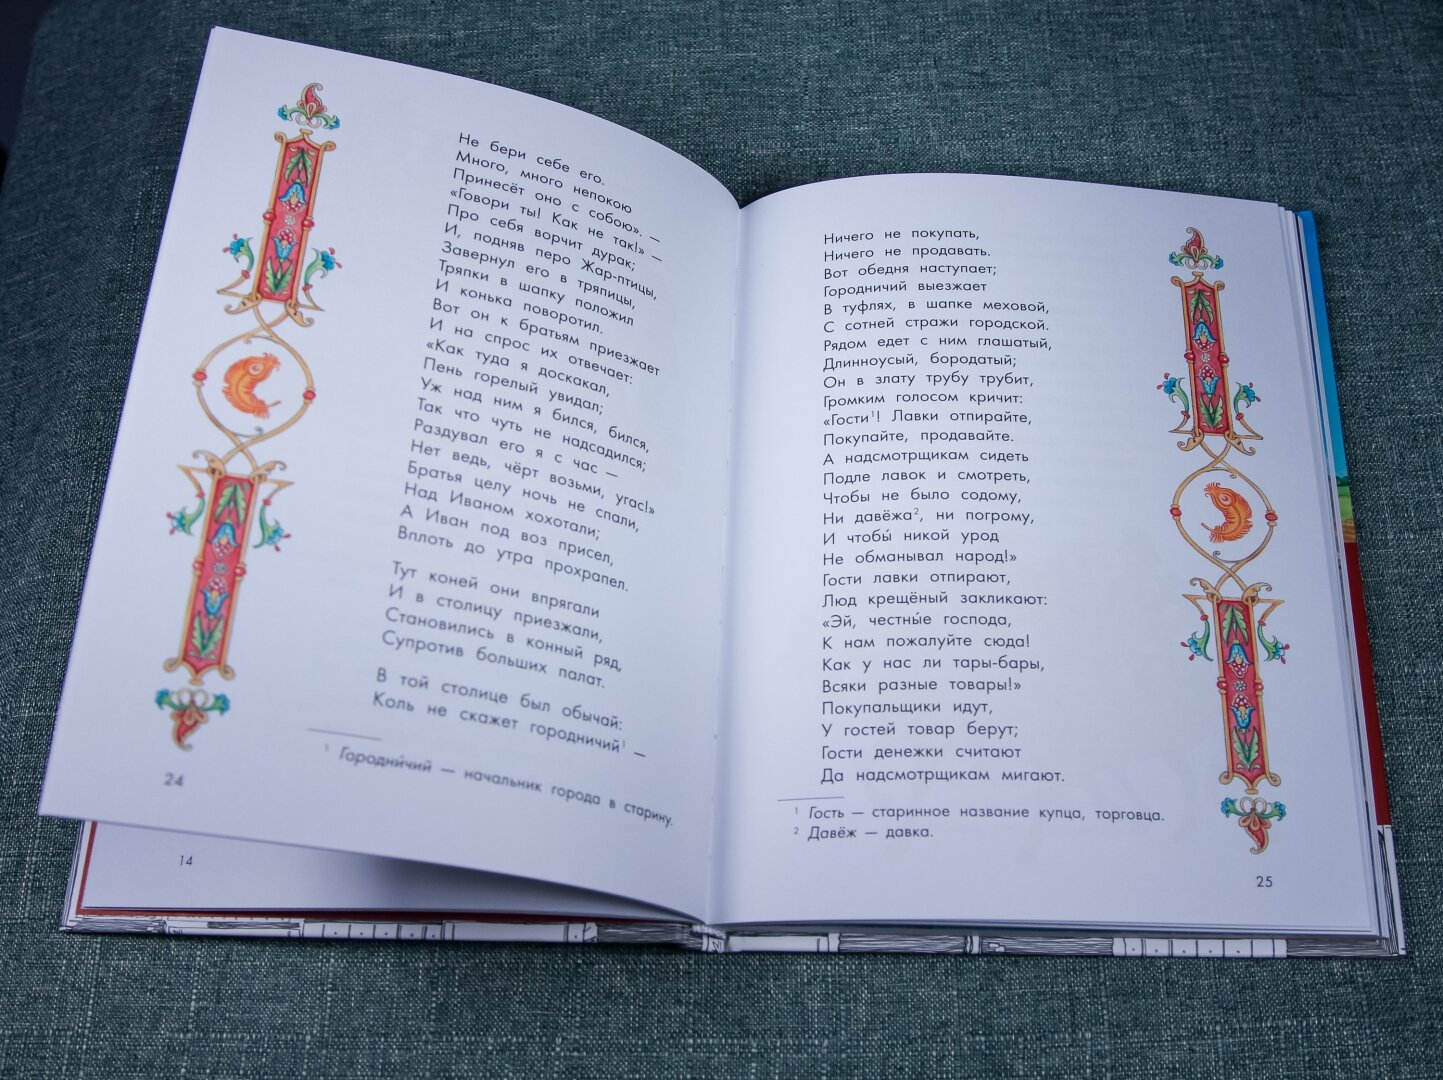 Не бери себе его.
Много, много непокою
Принесёт оно с собою». —
«Говори ты! Как не так!» —
Про себя ворчит дурак;
И, подняв перо Жар-птицы,
Завернул его в тряпицы,
Тряпки в шапку положил
И конька поворотил.
Вот он к братьям приезжает
И на спрос их отвечает:
«Как туда я доскакал,
Пень горелый увидал;
Уж над ним я бился, бился,
Так что чуть не надсадился;
Раздувал его я с час —
Нет ведь, чёрт возьми, угас!»
Братья целу ночь не спали,
Над Иваном хохотали;
А Иван под воз присел,
Вплоть до утра прохрапел.
Тут коней они впрягали
И в столицу приезжали,
Становились в конный ряд,
Супротив больших палат.
В той столице был обычай:
Коль не скажет городничий¹ —
¹ Городни́чий — начальник города в старину.
24
14
Ничего не покупать,
Ничего не продавать.
Вот обедня наступает;
Городничий выезжает
В туфлях, в шапке меховой,
С сотней стражи городской.
Рядом едет с ним глашатый,
Длинноусый, бородатый;
Он в злату трубу трубит,
Громким голосом кричит:
«Гости¹! Лавки отпирайте,
Покупайте, продавайте.
А надсмотрщикам сидеть
Подле лавок и смотреть,
Чтобы не было содому,
Ни давёжа², ни погрому,
И чтобы́ никой урод
Не обманывал народ!»
Гости лавки отпирают,
Люд крещёный закликают:
«Эй, честны́е господа,
К нам пожалуйте сюда!
Как у нас ли тары-бары,
Всяки разные товары!»
Покупальщики идут,
У гостей товар берут;
Гости денежки считают
Да надсмотрщикам мигают.
¹ Гость — старинное название купца, торговца.
² Давёж — давка.
25